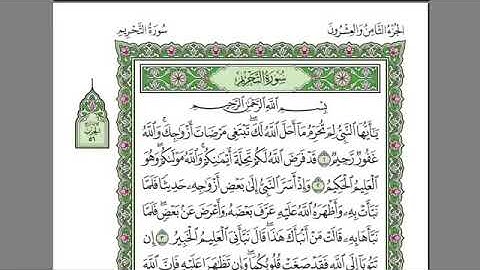 الجزء الثامن والعشرون
سورة التحريم
سُورَةُ التَّحْرِيمِ
بِسْمِ اللَّهِ الرَّحْمَٰنِ الرَّحِيمِ
يَٰٓأَيُّهَا ٱلنَّبِىُّ لِمَ تُحَرِّمُ مَآ أَحَلَّ ٱللَّهُ لَكَ ۖ تَبْتَغِى مَرْضَاتَ أَزْوَٰجِكَ ۚ وَٱللَّهُ
غَفُورٌ رَّحِيمٌ ١ قَدْ فَرَضَ ٱللَّهُ لَكُمْ تَحِلَّةَ أَيْمَٰنِكُمْ ۚ وَٱللَّهُ مَوْلَىٰكُمْ ۖ وَهُوَ
ٱلْعَلِيمُ ٱلْحَكِيمُ ٢ وَإِذْ أَسَرَّ ٱلنَّبِىُّ إِلَىٰ بَعْضِ أَزْوَٰجِهِۦ حَدِيثًا فَلَمَّا
نَبَّأَتْ بِهِۦ وَأَظْهَرَهُ ٱللَّهُ عَلَيْهِ عَرَّفَ بَعْضَهُۥ وَأَعْرَضَ عَنۢ بَعْضٍ ۖ فَلَمَّا
نَبَّأَهَا بِهِۦ قَالَتْ مَنْ أَنۢبَأَكَ هَٰذَا ۖ قَالَ نَبَّأَنِىَ ٱلْعَلِيمُ ٱلْخَبِيرُ ٣ إِن
تَتُوبَآ إِلَى ٱللَّهِ فَقَدْ صَغَتْ قُلُوبُكُمَا ۖ وَإِن تَظَٰهَرَا عَلَيْهِ فَإِنَّ ٱللَّهَ
الحزب
٥٦